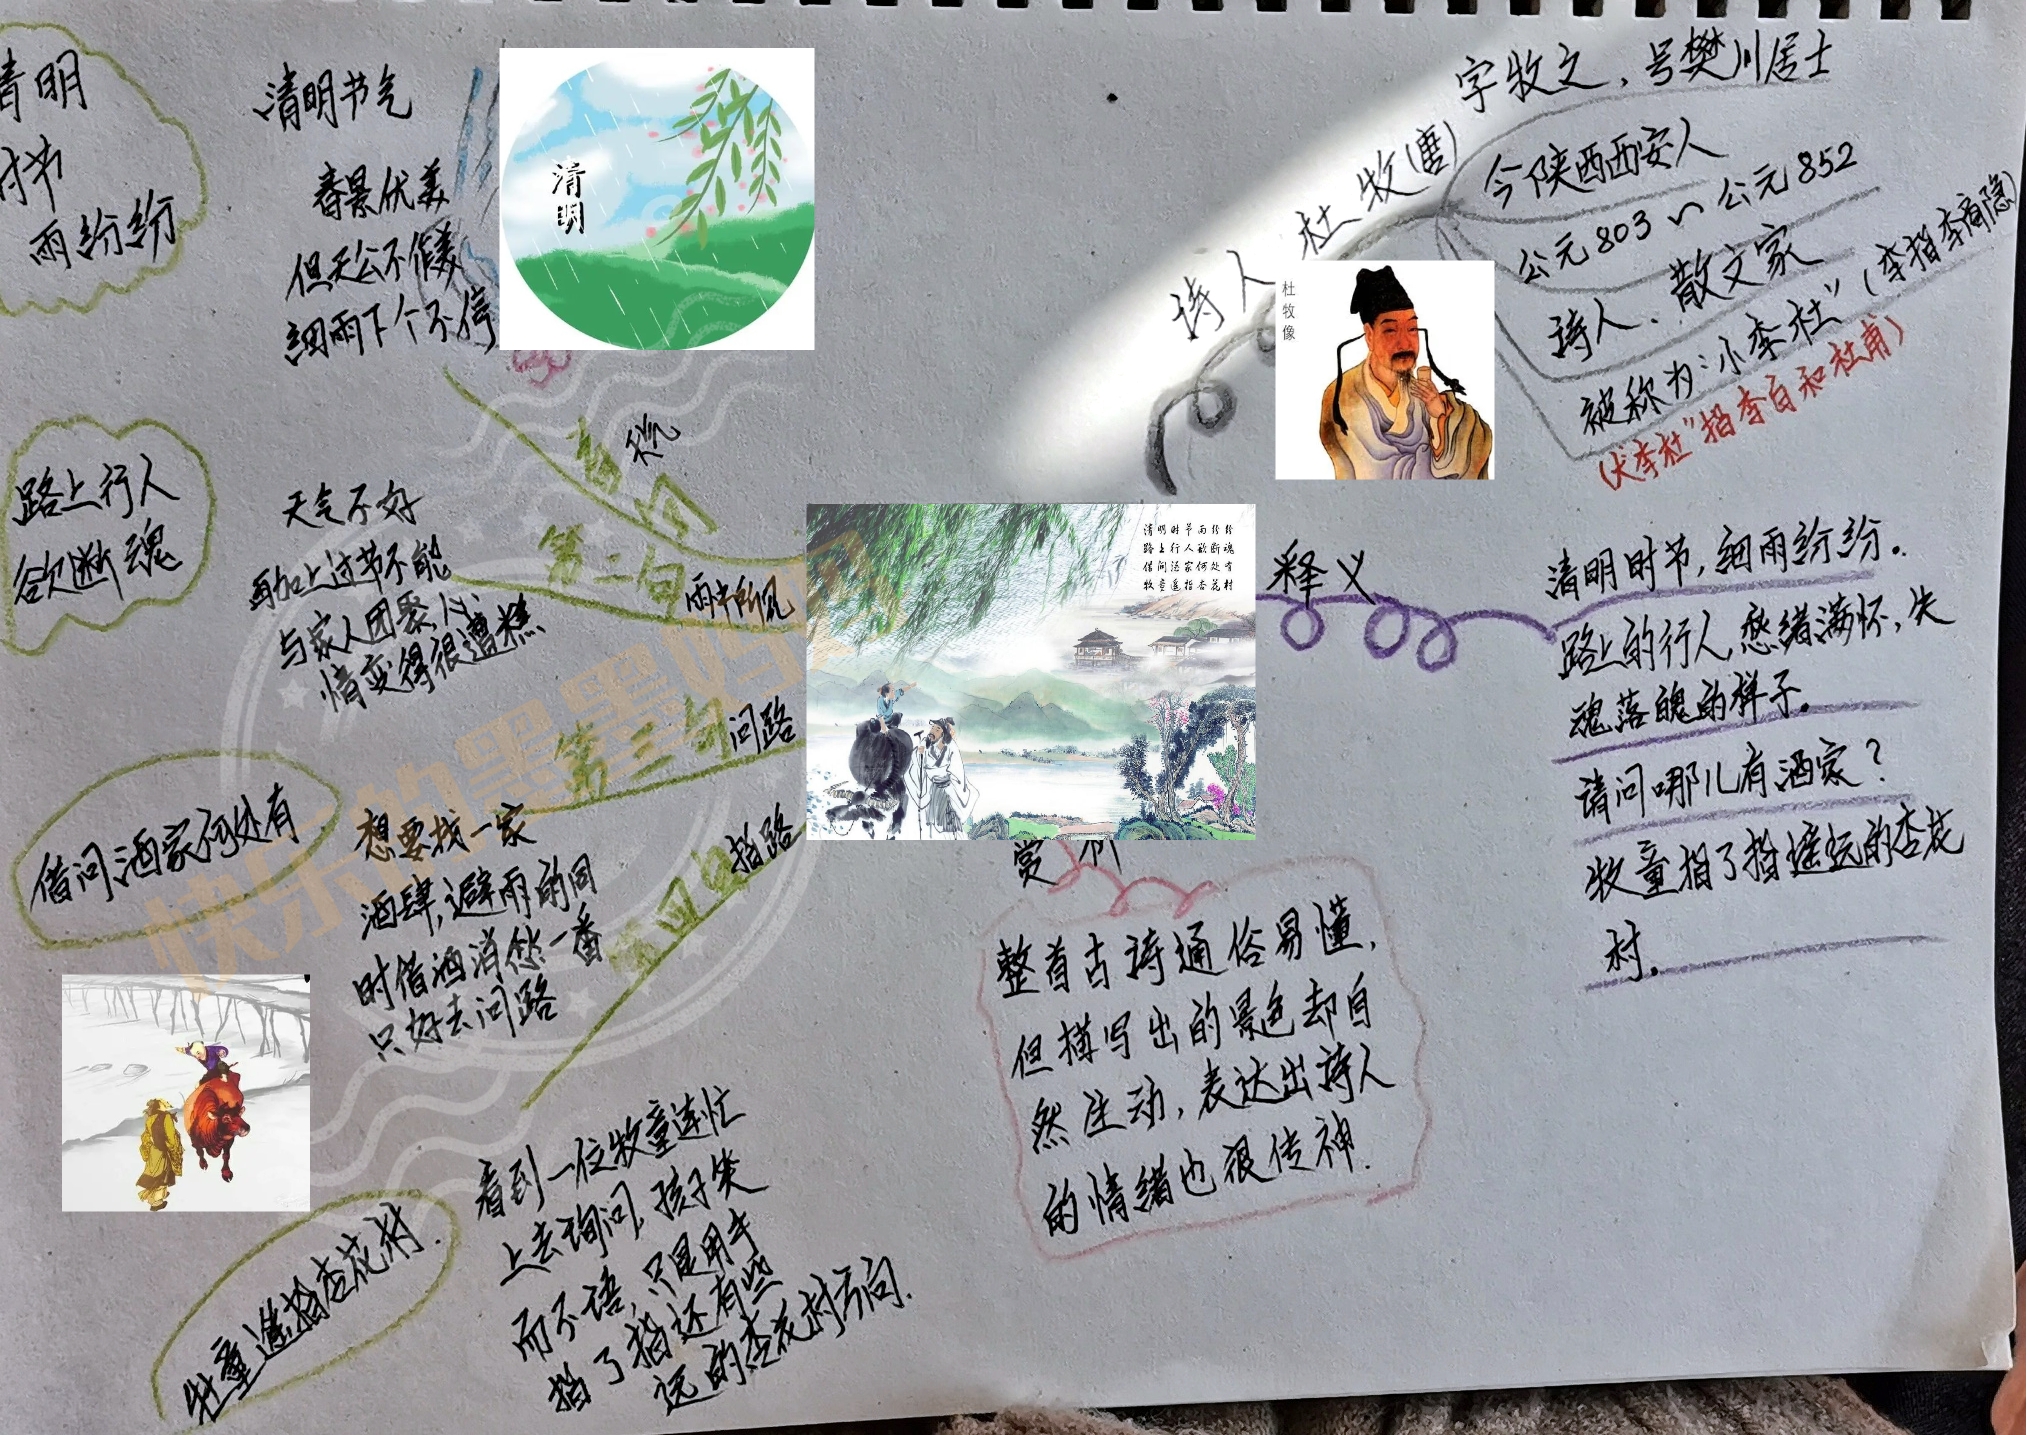 清明
时节
雨纷纷
清明节气
春景优美
但天公不作美
细雨下个不停
清
明
首句
第二句
雨中所见
第三句
问路
第四句
指路
路上行人
欲断魂
天气不好
再加上过节不能
与家人团聚,心
情变得很遭糕
借问酒家何处有
想要找一家
酒肆,避雨的同
时借酒消愁一番
只好去问路
牧童遥指杏花村.
看到一位牧童连忙
上去询问,孩子笑
而不语,只是用手
指了指还有些
远的杏花村方向.
清明时节雨纷纷
路上行人欲断魂
借问酒家何处有
牧童遥指杏花村
诗人 杜牧(唐)
字牧之,号樊川居士
今陕西西安人
公元803~公元852
诗人、散文家
被称为:"小李杜"(李指李商隐)
("大李杜"指李白和杜甫)
杜牧像
释义
清明时节,细雨纷纷。
路上的行人,愁绪满怀,失
魂落魄的样子。
请问哪儿有酒家?
牧童指了指遥远的杏花
村.
赏析
整首古诗通俗易懂,
但描写出的景色却自
然生动,表达出诗人
的情绪也很传神.
快乐的墨墨妈